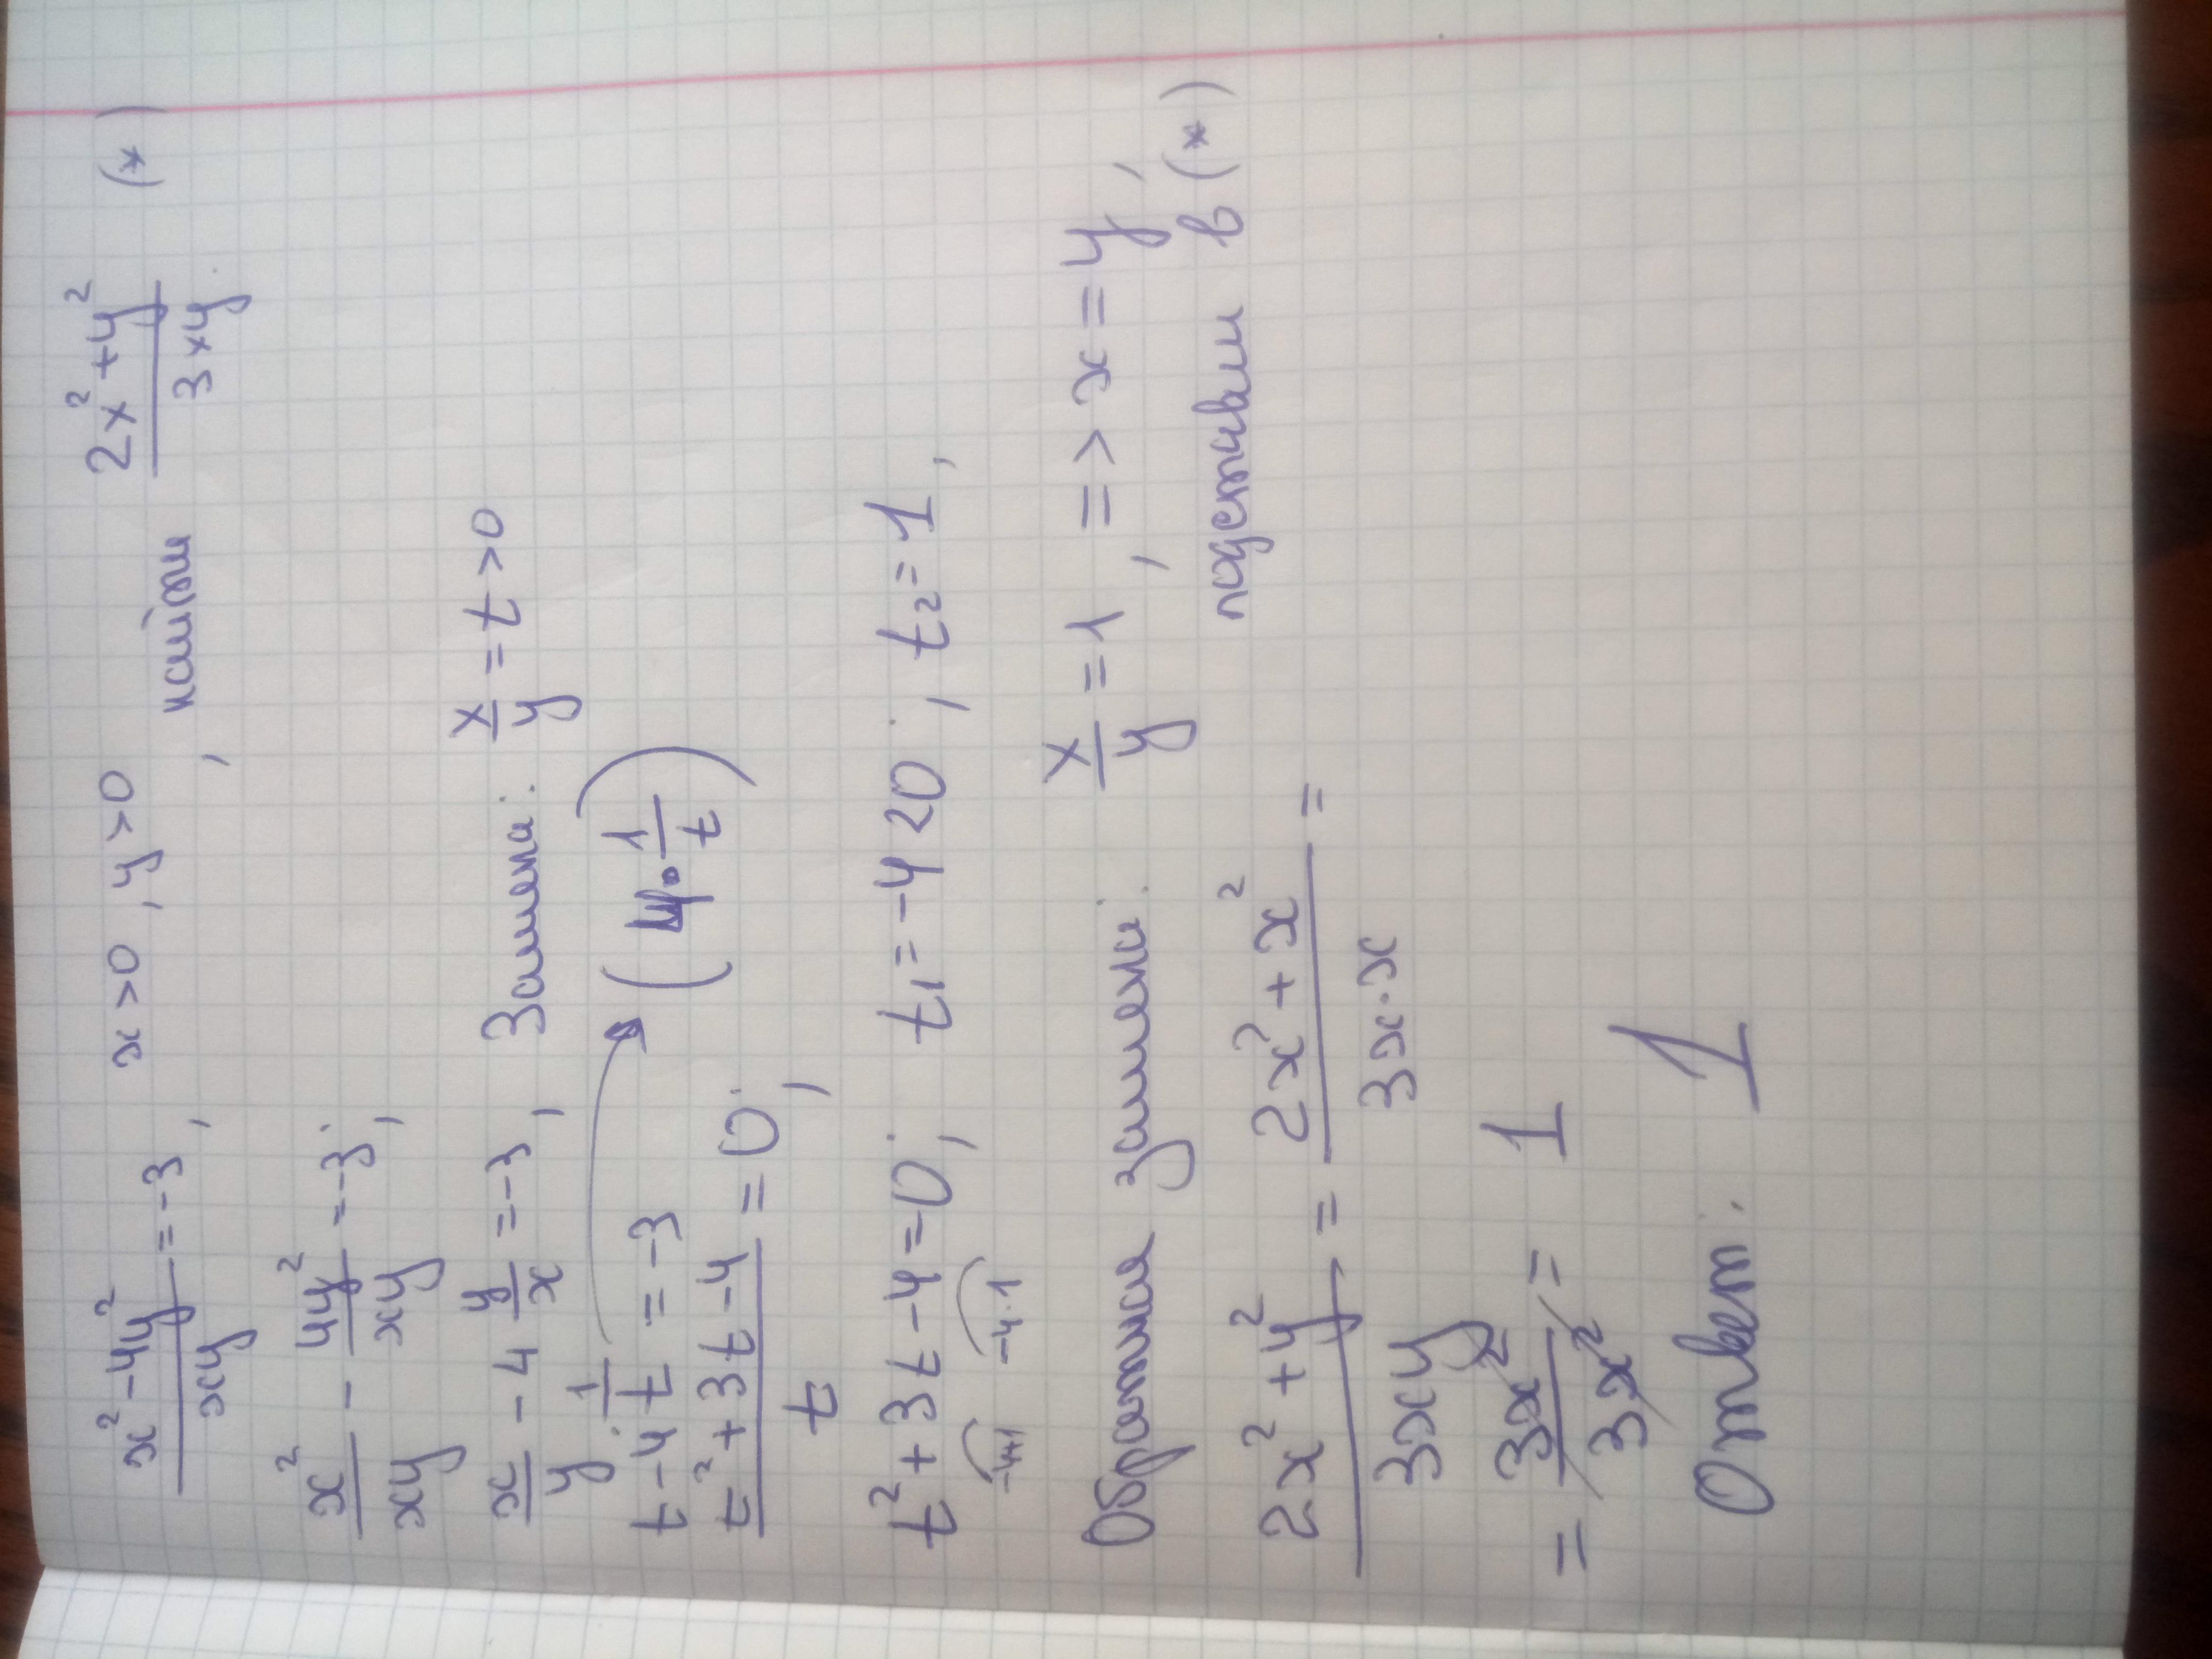 (x² - 4y²)/(xy) = -3, x > 0, y > 0, найти (2x² + y²)/(3xy). (*)
x²/(xy) - 4y²/(xy) = -3;
x/y - 4 y/x = -3, Замена: x/y = t > 0
t - 4·1/t = -3 (4·1/t)
(t² + 3t - 4)/t = 0;
t² + 3t - 4 = 0; t₁ = -4 < 0; t₂ = 1,
-4+1 -4·1
Обратная замена: x/y = 1, => x = y,
подставим в (*)
(2x² + y²)/(3xy) = (2x² + x²)/(3x·x) =
= 3x²/3x² = 1
Ответ: 1